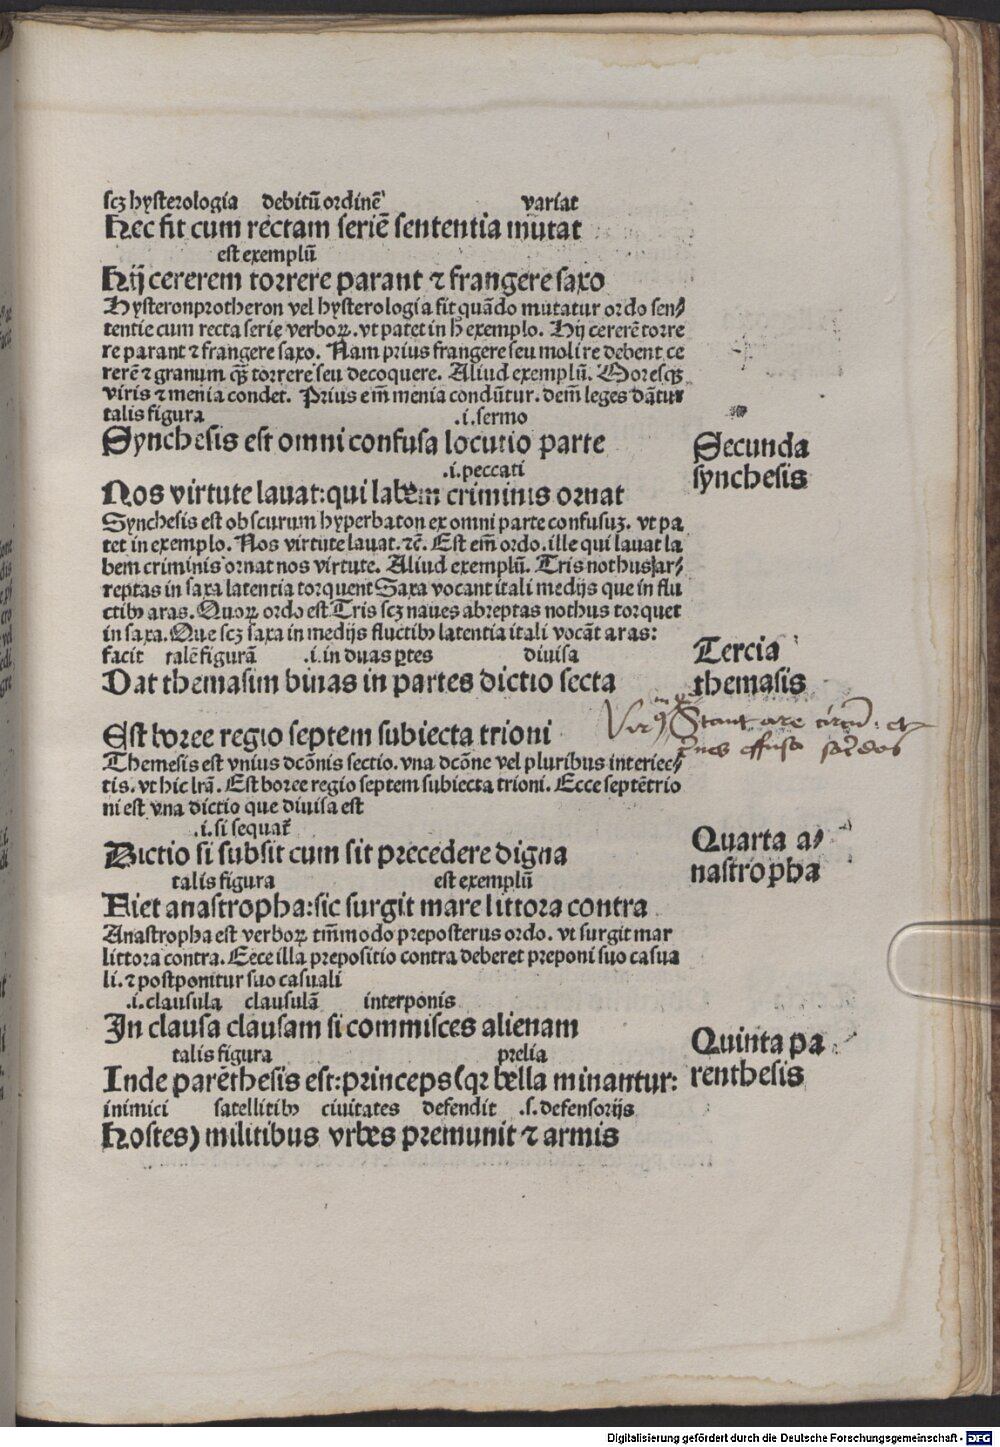 scꝫ hysterologia debitū ordinē variat
Hec fit cum rectam seriē sententia mutat
est exemplū
Hij cererem torrere parant ⁊ frangere saxo
Hysteronprotheron vel hysterologia fit quādo mutatur ordo sen⸗
tentie cum recta serie verboꝝ. vt patet in h̄ exemplo. Hij cererē torre
re parant ⁊ frangere saxo. Nam prius frangere seu molire debent ce
rerē ⁊ granum qꝫ̄ torrere seu decoquere. Aliud exemplū. Moresqꝫ
viris ⁊ menia condet. Prius em̄ menia condūtur. dem̄ leges dātur
talis figura .i. sermo
Synchesis est omni confusa locutio parte
Secunda
synchesis
.i. peccati
Nos virtute lauat: qui labem criminis ornat
Synchesis est obscurum hyperbaton ex omni parte confusuꝫ. vt pa
tet in exemplo. Nos virtute lauat. ⁊c̄. Est em̄ ordo. ille qui lauat la
bem criminis ornat nos virtute. Aliud exemplū. Tris nothus ar⸗
reptas in saxa latentia torquent Saxa vocant itali medijs que in flu
ctibꝰ aras. Quoꝝ ordo est Tris scꝫ naues abreptas nothus torquet
in saxa. Que scꝫ saxa in medijs fluctibꝰ latentia itali vocāt aras:
facit talē figurā .i. in duas ꝑtes diuisa
Dat themasim binas in partes dictio secta
Tercia
themasis
Stant are circū: et
effusa
Est boree regio septem subiecta trioni
Themesis est vnius dcōnis sectio. vna dcōne vel pluribus interiec⸗
tis. vt hic lr̄a. Est boree regio septem subiecta trioni. Ecce septētrio
ni est vna dictio que diuisa est
.i. si sequat᷑
Dictio si subsit cum sit precedere digna
Quarta a⸗
nastropha
talis figura est exemplū
Fiet anastropha: sic surgit mare littora contra
Anastropha est verboꝝ tm̄modo preposterus ordo. vt surgit mar
littora contra. Eece illa prepositio contra deberet preponi suo casua
li. ⁊ postponitur suo casuali
.i. clausula clausulā interponis
In clausa clausam si commisces alienam
Quinta pa
renthesis
talis figura prelia
Inde parēthesis est: princeps (qꝛ bella minantur:
inimici satellitibꝰ ciuitates defendit .s. defensorijs
Hostes) militibus vrbes premunit ⁊ armis
Digitalisierung gefördert durch die Deutsche Forschungsgemeinschaft - DFG